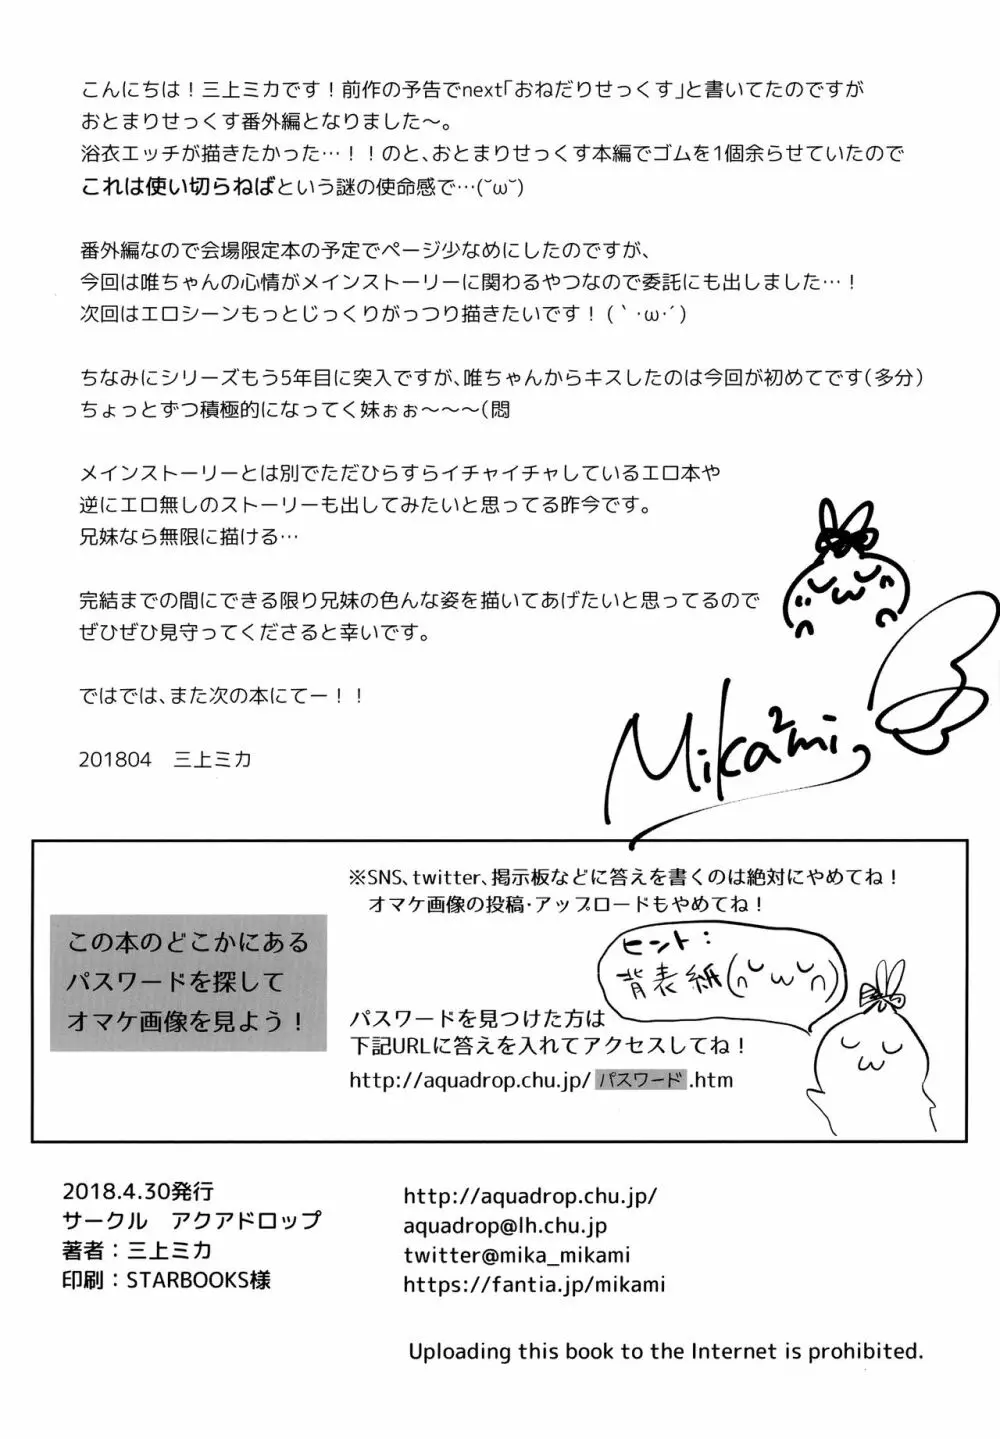 こんにちは！三上ミカです！前作の予告でnext「おねだりせっくす」と書いてたのですが
おとまりせっくす番外編となりました～。
浴衣エッチが描きたかった…！！のと、おとまりせっくす本編でゴムを1個余らせていたので
これは使い切らねばという謎の使命感で…(˘ω˘)
番外編なので会場限定本の予定でページ少なめにしたのですが、
今回は唯ちゃんの心情がメインストーリーに関わるやつなので委託にも出しました…！
次回はエロシーンもっとじっくりがっつり描きたいです！(｀･ω･´)
ちなみにシリーズもう5年目に突入ですが、唯ちゃんからキスしたのは今回が初めてです（多分）
ちょっとずつ積極的になってく妹ぉぉ～～～（悶
メインストーリーとは別でただひらすらイチャイチャしているエロ本や
逆にエロ無しのストーリーも出してみたいと思ってる昨今です。
兄妹なら無限に描ける…
完結までの間にできる限り兄妹の色んな姿を描いてあげたいと思ってるので
ぜひぜひ見守ってくださると幸いです。
ではでは、また次の本にてー！！
201804　三上ミカ
Mika²mi
この本のどこかにある
パスワードを探して
オマケ画像を見よう！
※SNS、twitter、掲示板などに答えを書くのは絶対にやめてね！
オマケ画像の投稿・アップロードもやめてね！
ヒント：
背表紙(∩˘ω˘∩)
パスワードを見つけた方は
下記URLに答えを入れてアクセスしてね！
http://aquadrop.chu.jp/パスワード.htm
2018.4.30発行
サークル　アクアドロップ
著者：三上ミカ
印刷：STARBOOKS様
http://aquadrop.chu.jp/
aquadrop@lh.chu.jp
twitter@mika_mikami
https://fantia.jp/mikami
Uploading this book to the Internet is prohibited.